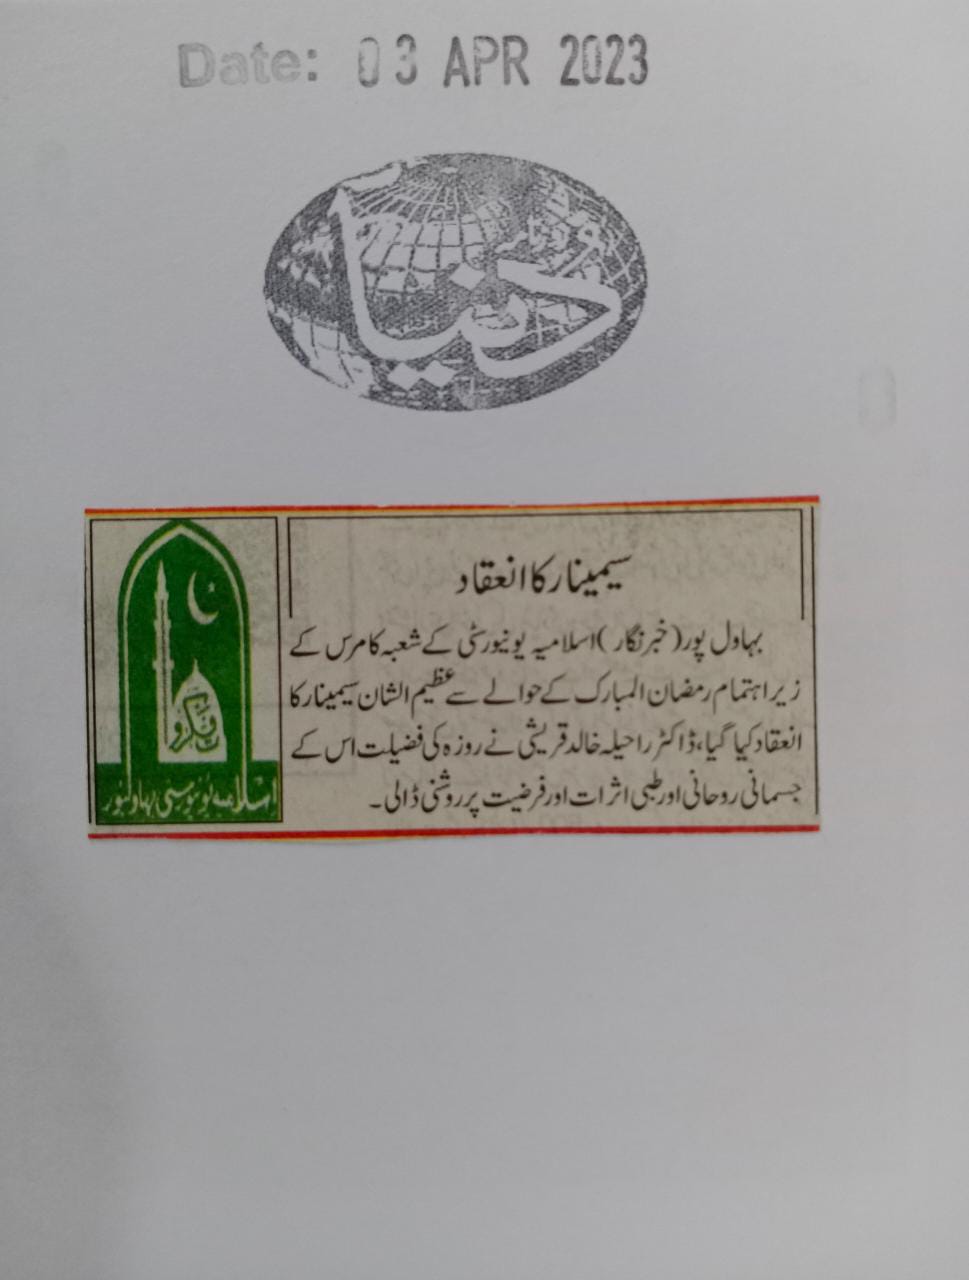 Date: 03 APR 2023
روزنامہ
دنیا
سیمینار کا انعقاد
بہاول پور (خبر نگار) اسلامیہ یونیورسٹی کے شعبہ کامرس کے
زیر اہتمام رمضان المبارک کے حوالے سے عظیم الشان سیمینار کا
انعقاد کیا گیا، ڈاکٹر راحیلہ خالد قریشی نے روزہ کی فضیلت اس کے
جسمانی روحانی اور طبی اثرات اور فرضیت پر روشنی ڈالی۔
اسلامیہ یونیورسٹی بہاولپور